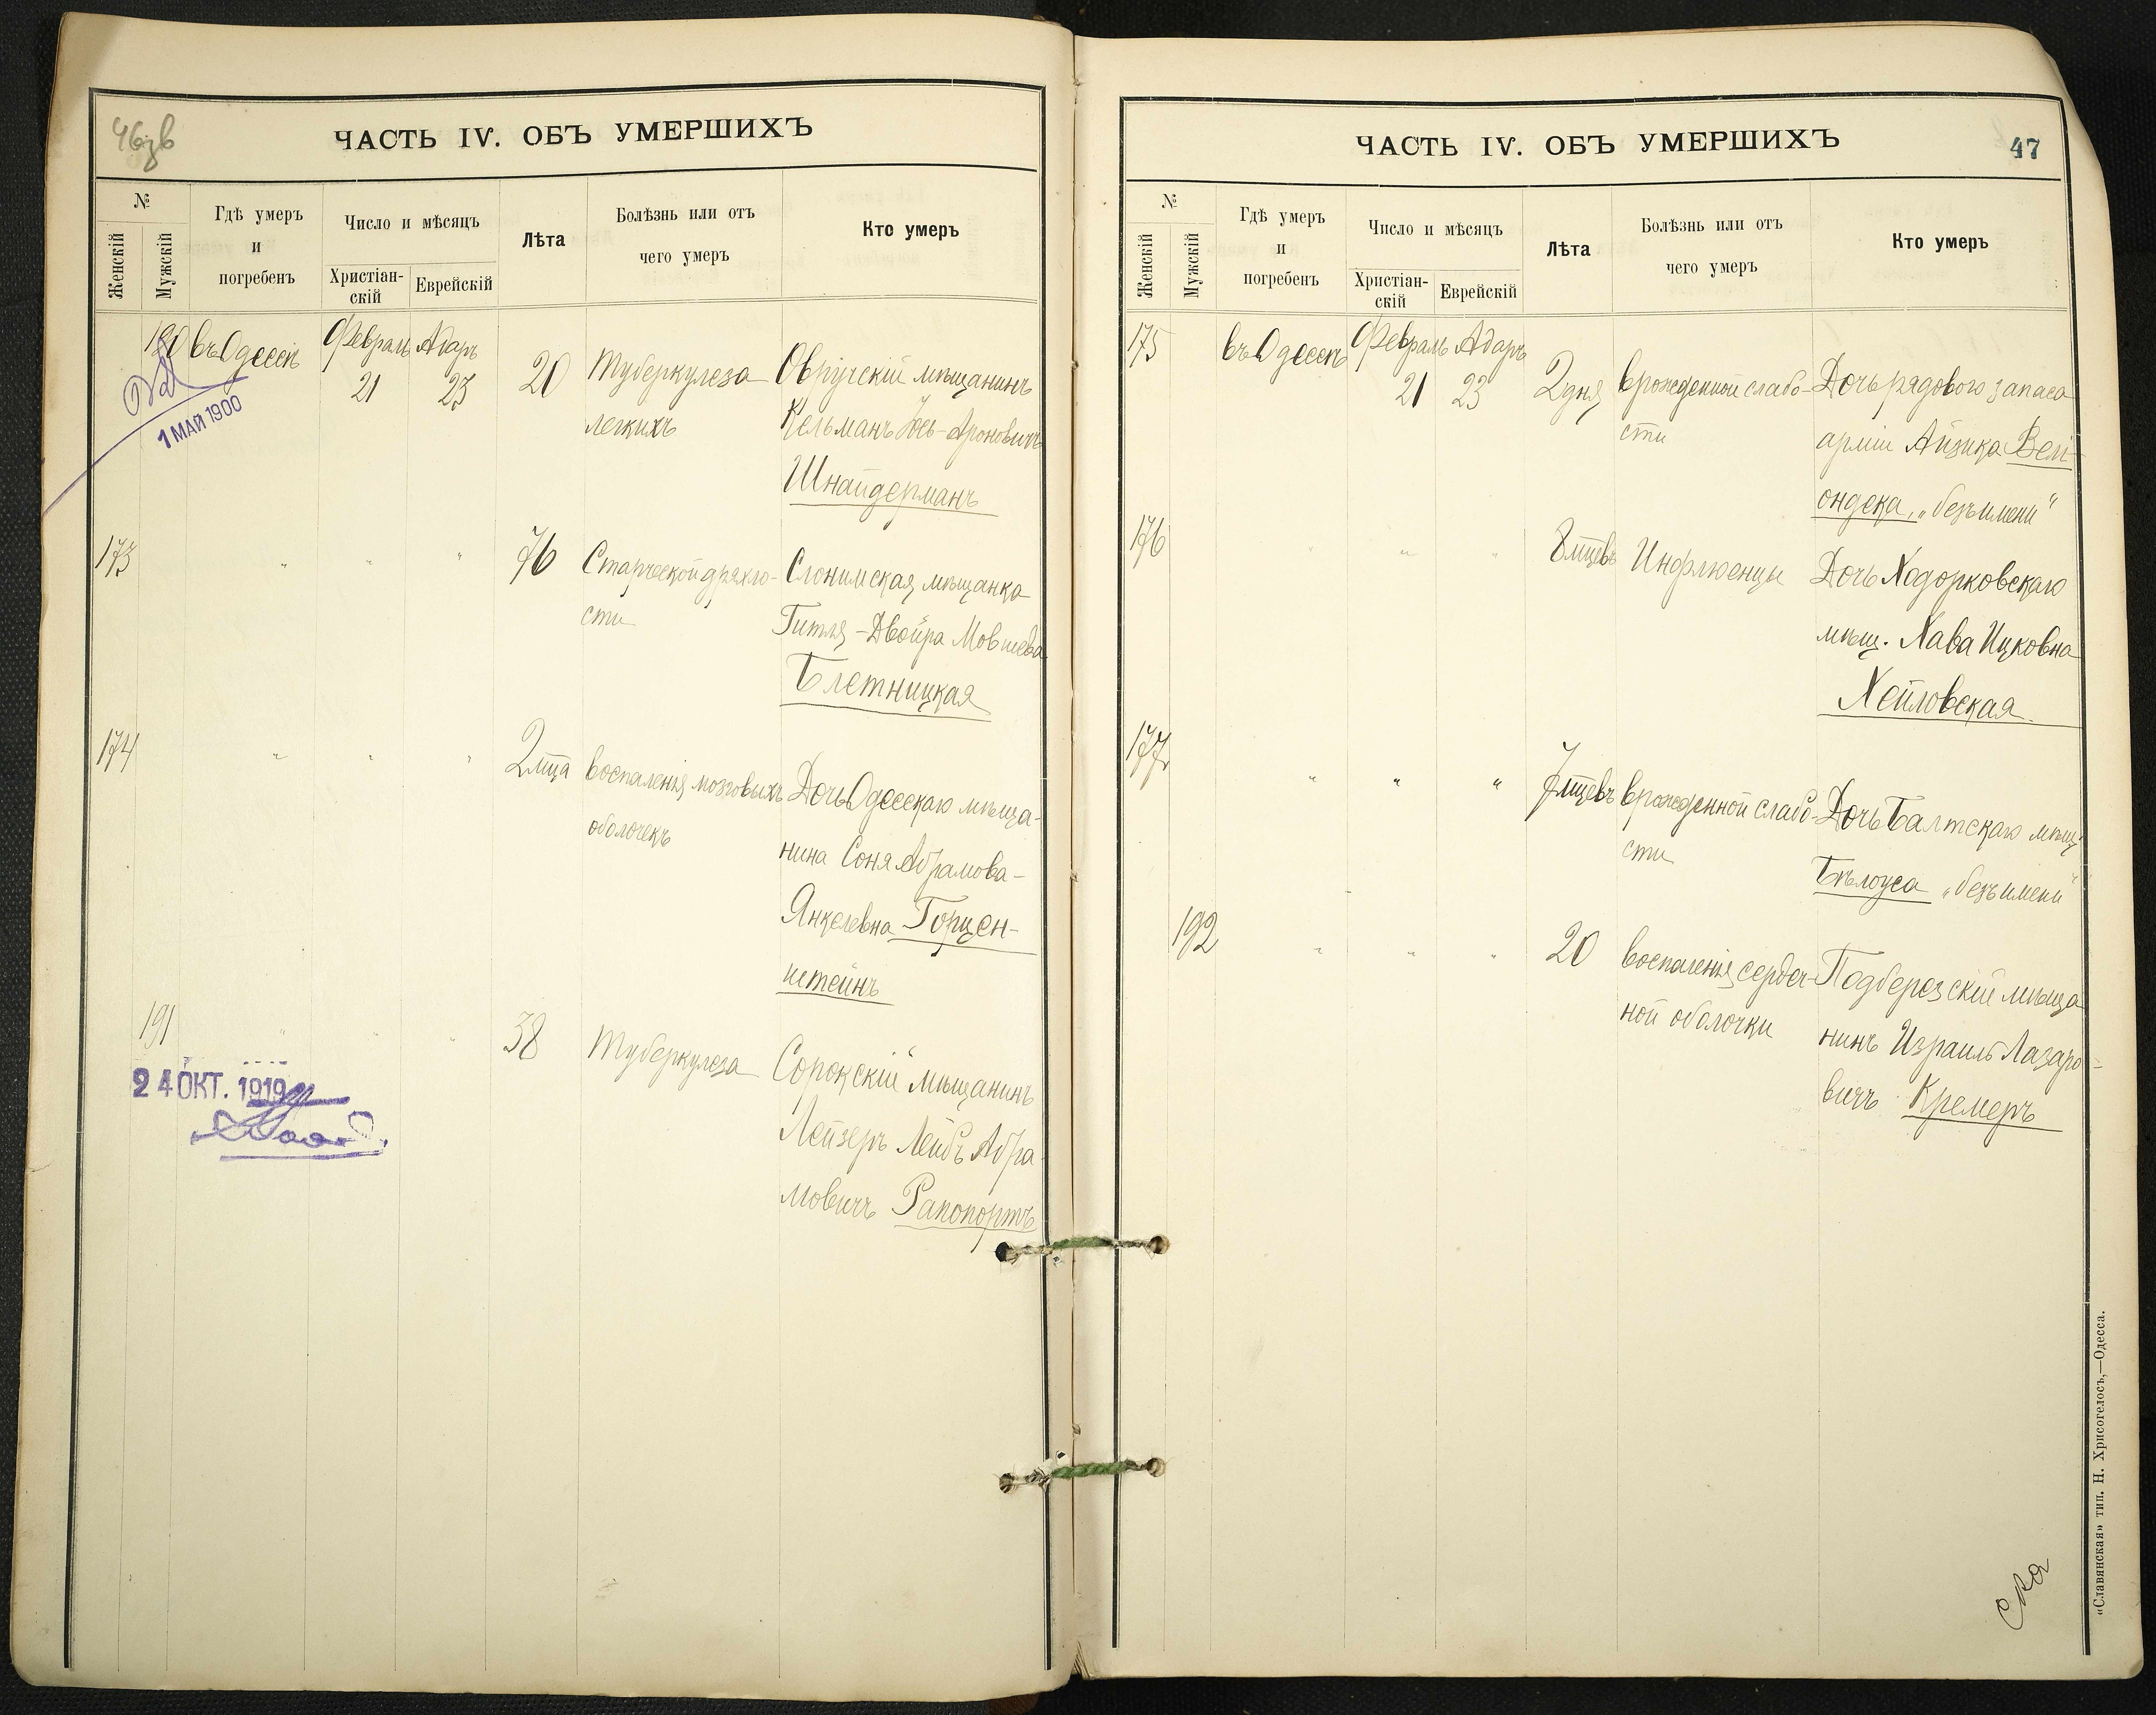 ЧАСТЬ IV. ОБЪ УМЕРШИХЪ
№
Женскій
Мужскій
Гдѣ умеръ
и
погребенъ
Число и мѣсяцъ
Христіан-
скій
Еврейскій
Лѣта
Болѣзнь или отъ
чего умеръ
Кто умеръ
190 въ Одессѣ Февраль Адаръ
21 23 20 Туберкулеза Овручскій мѣщанинъ
легкихъ Кельманъ Іось-Ароновичъ
Шнайдерманъ
1 МАЙ 1900
173 " " " 76 Старческой дряхло- Слонимская мѣщанка
сти Гитля-Двойра Мовшева
Блетницкая
174 " " " 2 мца воспаленія мозговыхъ Дочь Одесскаго мѣща-
оболочекъ нина Соня Абрамова-
Янкелевна Горцен-
штейнъ
191 " " " 38 Туберкулеза Сорокскій мѣщанинъ
24 ОКТ. 1919
Лейзеръ Лейбъ Абра-
мовичъ Рапопортъ
ЧАСТЬ IV. ОБЪ УМЕРШИХЪ
47
№
Женскій
Мужскій
Гдѣ умеръ
и
погребенъ
Число и мѣсяцъ
Христіан-
скій
Еврейскій
Лѣта
Болѣзнь или отъ
чего умеръ
Кто умеръ
175 въ Одессѣ Февраль Адаръ
21 23 2 дня врожденной слабо- Дочь рядового запаса
сти арміи Айзика Вели-
ондека, „безъ имени"
176 " " " 8 мцевъ Инфлюенцы Дочь Ходорковскаго
мѣщ. Хава Ицковна
Хейловская
177 " " " 7 мцевъ врожденной слабо- Дочь Балтскаго мѣщ.
сти Бѣлоуса „безъ имени"
192 " " " 20 воспаленія сердеч- Подберезскій мѣща
ной оболочки нинъ Израиль Лазаро-
вичъ Кремеръ
«Славянская» тип. Н. Хрисогелосъ,—Одесса.